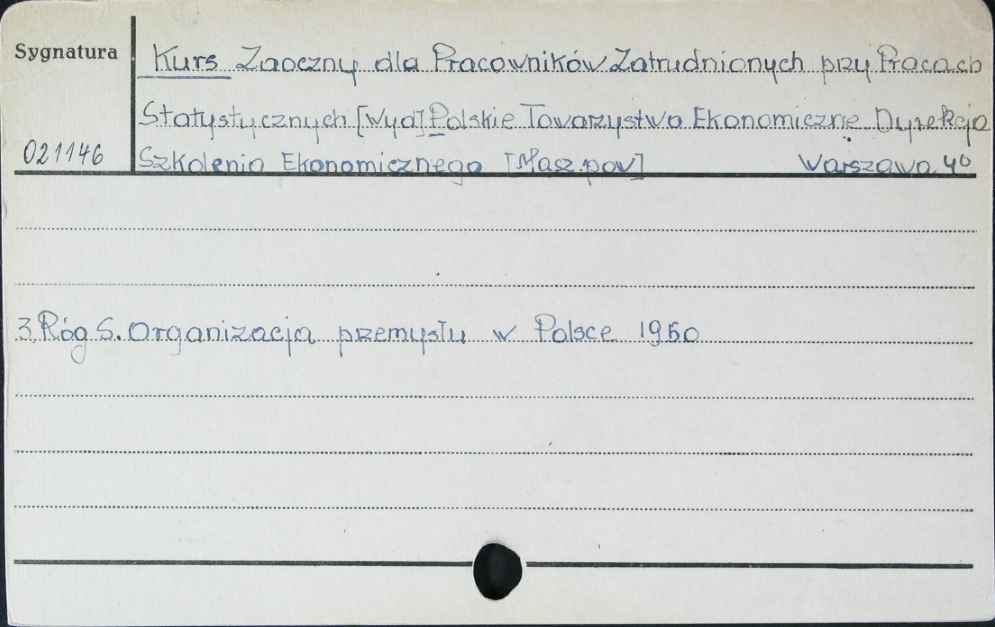 Sygnatura
Kurs Zaoczny dla Pracowników Zatrudnionych przy Pracach
Statystycznych [Wyd] Polskie Towarzystwo Ekonomiczne. Dyrekcja
021146
Szkolenia Ekonomicznego [Masz.pow] Warszawa 4°
3. Róg S. Organizacja przemysłu w Polsce 1960